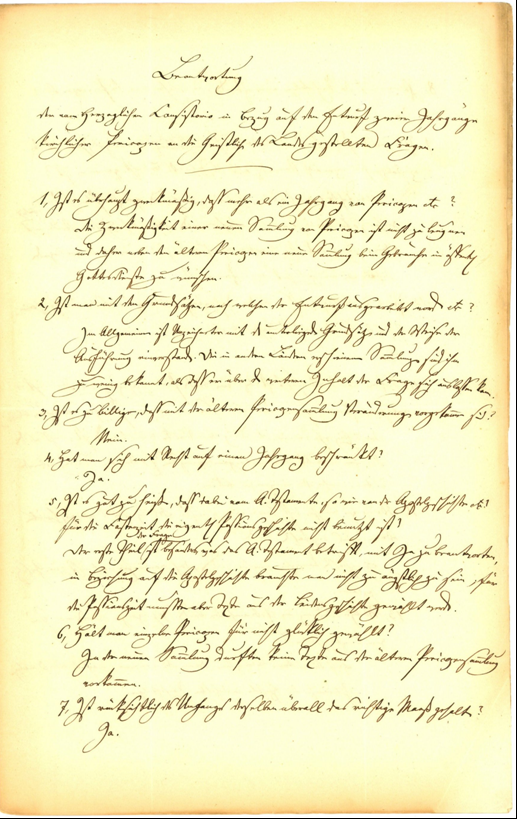 Beantwortung
der vom Herzoglichen Consistorio in Bezug auf den Entwurf zweier Jahrgänge
kirchlicher Pericopen an die Geistlichen des Landes gestellten Fragen.
1, Ist es überhaupt zweckmäßig, daß mehr als ein Jahrgang von Pericopen etc?
Die Zweckmäßigkeit einer neuen Sammlung von Pericopen ist nicht zu leugnen
und daher neben den ältern Pericopen eine neue Sammlung beim Gebrauche in
Gottesdienste zu wünschen.
2, Ist man mit den Grundsätzen, nach welchen der Entwurf ausgearbeitet worden etc?
Im Allgemeinen ist Unterzeichneter mit den Grundsätzen und der Weise der
Ausführung einverstanden. Die in andern Ländern erschienenen Sammlungen sind ihm
zu wenig bekannt, als daß er über den weitern Inhalt der Frage sich auslassen kann.
3, Ist es zu billigen, daß mit der ältern Pericopensammlung Veränderungen vorgenommen sind?
Nein.
4, Hat man sich mit Recht auf einen Jahrgang beschränkt?
Ja.
5, Ist es gut zu heißen, daß dabei vom A. Testamente, so wie von der Apostelgeschichte etc?
für die Fastenzeit die eigentl. Passionsgeschichte nicht benutzt ist?
Der erste Theil der Frage, was das A. Testament betrifft, mit Ja zu beantworten,
in Beziehung auf die Apostelgeschichte brauchte man nicht so ängstlich zu sein, für
die Passionszeit mußten aber Texte aus der Leidensgeschichte gewählt werden.
6, Hält man einzelne Pericopen für nicht glücklich gewählt?
In der neuen Sammlung durften keine Texte aus der ältern Pericopensammlung
vorkommen.
7, Ist rücksichtlich des Umfanges derselben überall das richtige Maaß gehalten?
Ja.